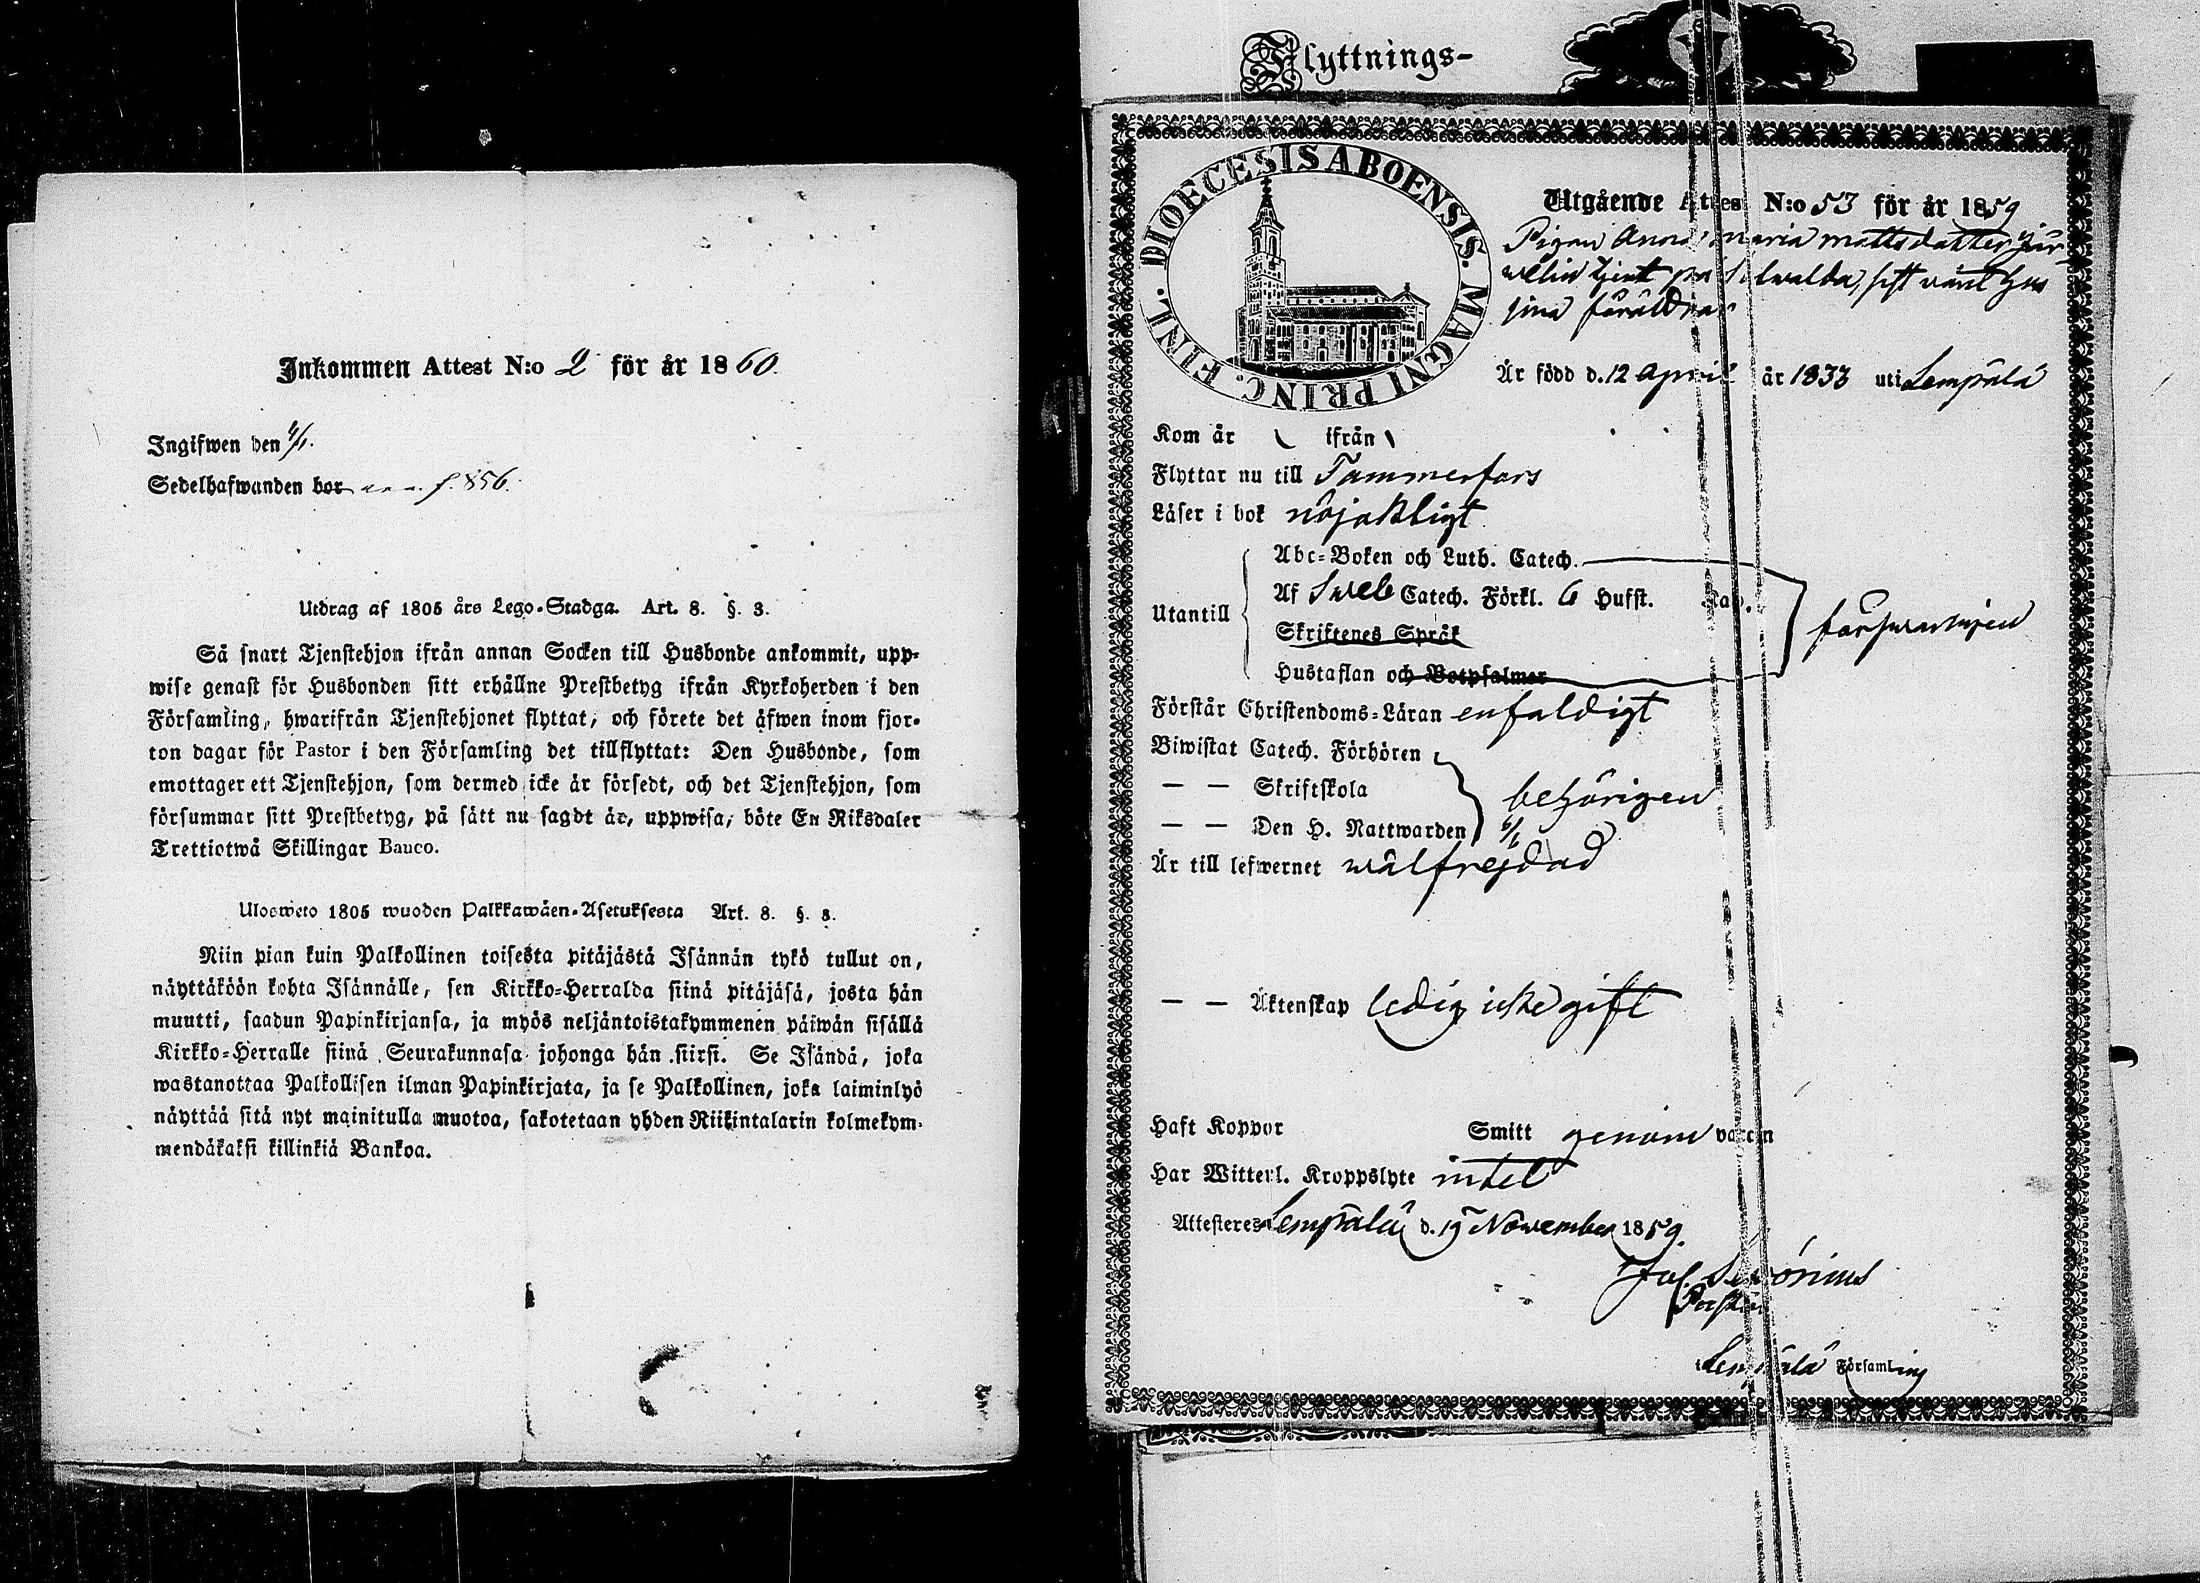 Inkommen Attest N:o 2 för år 1860.
Ingifwen den 4/1.
Sedelhafwanden bor f. 856.
Utdrag af 1805 års Lego-Stadga. Art. 8. §. 3.
Så snart Tjenstehjon ifrån annan Socken till Husbonde ankommit, upp-
wise genast för Husbonden sitt erhållne Prestbetyg ifrån Kyrkoherden i den
Församling, hwarifrån Tjenstehjonet flyttat, och förete det äfwen inom fjor-
ton dagar för Pastor i den Församling det tillflyttat: Den Husbonde, som
emottager ett Tjenstehjon, som dermed icke är försedt, och det Tjenstehjon, som
försummar sitt Prestbetyg, på sätt nu sagdt är, uppwisa, böte En Riksdaler
Trettiotwå Skillingar Banco.
Ulosweto 1805 wuoden Palkkawäen-Asetuksesta Art. 8. §. 3.
Niin pian kuin Palkollinen toisesta pitäjästä Isännän tykö tullut on,
näyttäköön kohta Isännälle, sen Kirkko-Herralda siinä pitäjäsä, josta hän
muutti, saadun Papinkirjansa, ja myös neljäntoistakymmenen päiwän sisällä
Kirkko-Herralle siinä Seurakunnasa johonga hän siirsi. Se Isändä, joka
wastanottaa Palkollisen ilman Papinkirjata, ja se Palkollinen, joka laiminlyö
näyttää sitä nyt mainitulla muotoa, sakotetaan yhden Riikintalarin kolmekym-
mendäkaksi killinkiä Bankoa.
Flyttnings-
DIOECESIS ABOENSIS. MAGNI PRINC. FINL.
Utgående Attest N:o 53 för år 1859
Pigan Anna Maria Mattsdatter Jär
welin tjent på, sist varit hos
sina föräldrar
Är född d. 12 April år 1833 uti Lempälä
Kom år ifrån
Flyttar nu till Tammerfors
Läser i bok nöjaktligt
Utantill
Abc-Boken och Luth. Catech.
Af Sveb Catech. Förkl. 6 Hufst. Kap.
Skriftenes Språk
Hustaflan och Botpsalmer
försvarligen
Förstår Christendoms-Läran enfaldigt
Biwistat Catech. Förhören
— — Skriftskola
behörigen
— — Den H. Nattwarden 6/6
Är till lefwernet wälfrejdad
— — Äktenskap ledig icke gift
Haft Koppor Smitt genom vaccin
Har Witterl. Kroppslyte intet
Attesteres Lempälä d. 19 November 1859.
Pastor
i Lempälä Församling